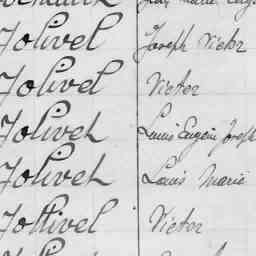 Jolivel Joseph Victor
Jolivel Victor
Jolivet Louis Eugène Joseph
Jolivet Louis Marie
Jollivel Victor